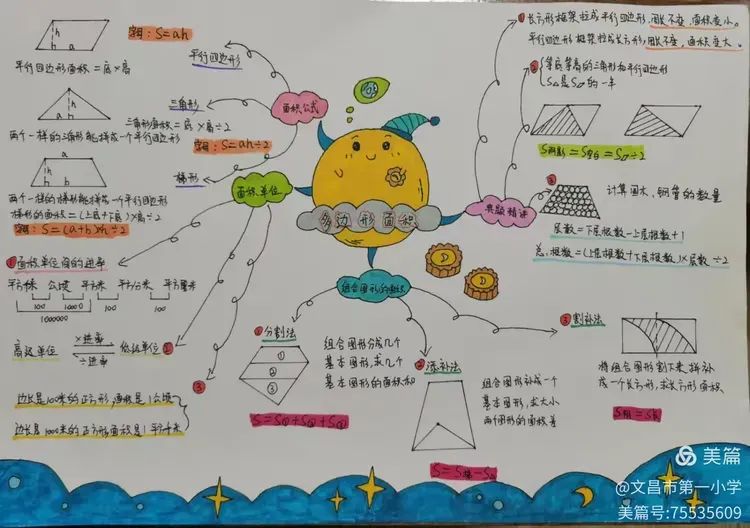 多边形面积
面积公式
平行四边形
字母：S=ah
h
a
平行四边形面积=底×高
三角形
h
a
三角形面积=底×高÷2
两个一样的三角形能拼成一个平行四边形
字母：S=ah÷2
梯形
a
h
b
两个一样的梯形能拼成一个平行四边形
梯形的面积=(上底+下底)×高÷2
字母：S=(a+b)×h÷2
面积单位
①面积单位间的进率
平方千米 公顷 平方米 平方分米 平方厘米
100 10000 100 100
1000000
高级单位 ×进率 低级单位 ②
÷进率
③
边长是100米的正方形,面积是1公顷
边长是1000米的正方形面积是1平方千米
组合图形的面积
①分割法
①
②
③
组合图形分成几个
基本图形,求几个
基本图形的面积和
S=S①+S②+S③
②添补法
组合图形补成一个
基本图形,求大小
两个图形的面积差
③割补法
将组合图形割下来,拼补
成一个长方形,求长方形面积
典题精讲
①长方形框架拉成平行四边形,周长不变,面积变小。
平行四边形框架拉成长方形,周长不变,面积变大。
②等底等高的三角形和平行四边形
S△是S▱的一半
S阴影=S空白=S▱÷2
③
计算圆木,钢管的数量
层数=下层根数-上层根数+1
总根数=(上层根数+下层根数)×层数÷2
美篇
@文昌市第一小学
美篇号:75535609